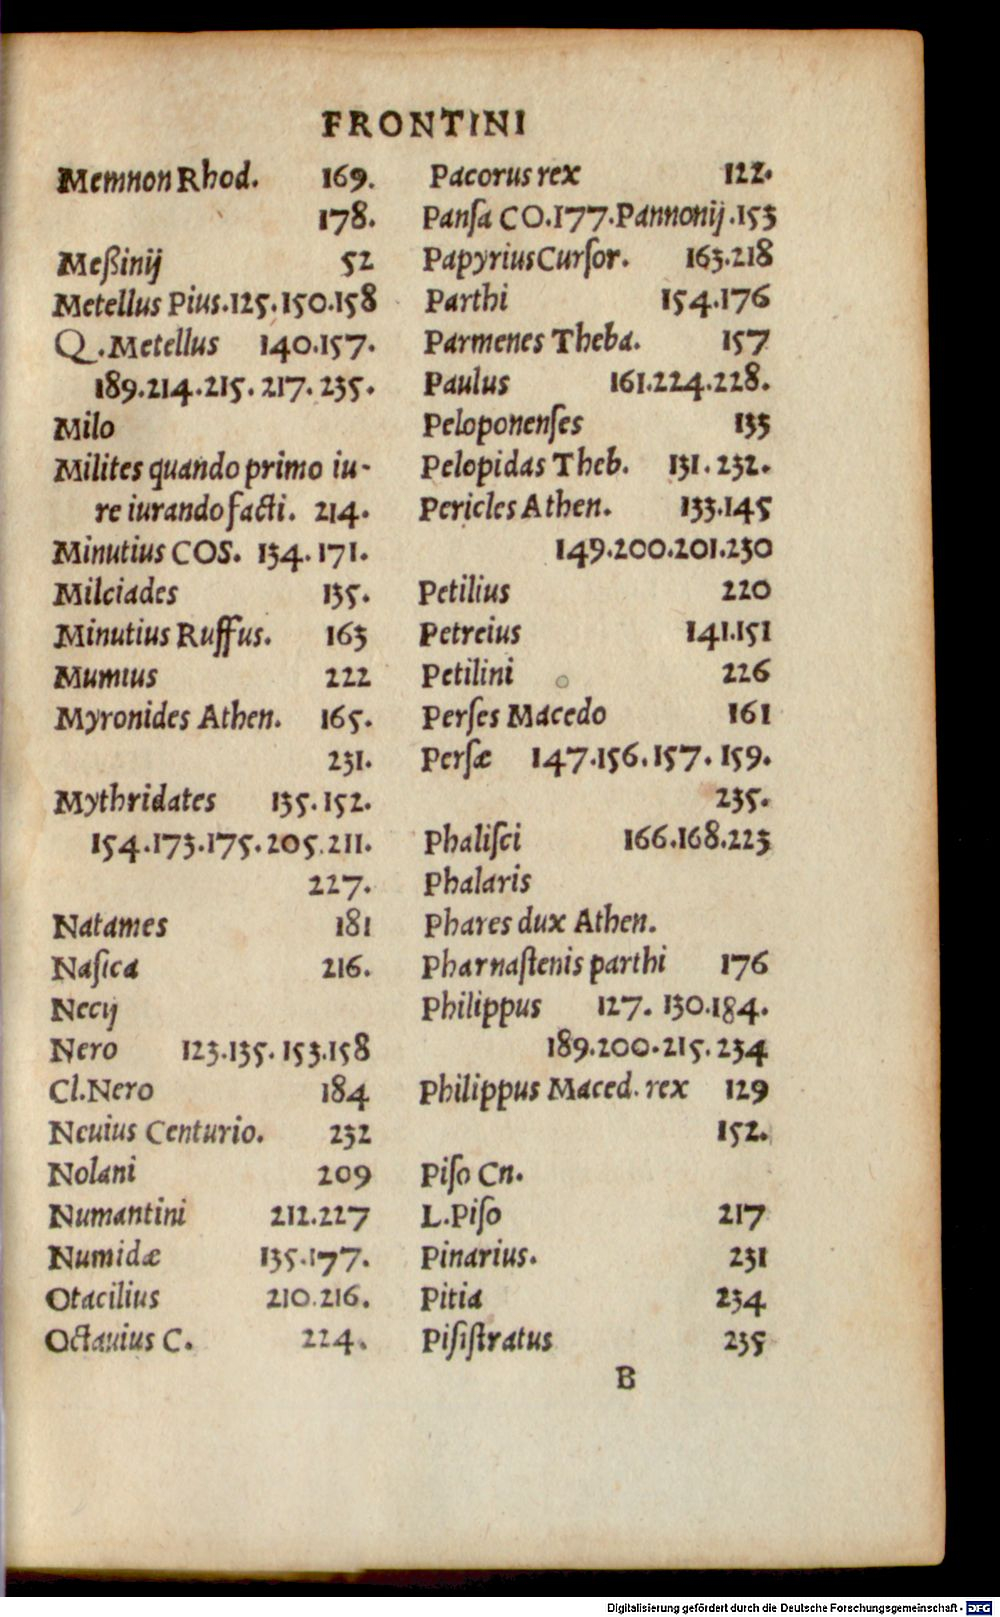 FRONTINI
Memnon Rhod. 169.
178.
Meßinij 52
Metellus Pius.125.150.158
Q.Metellus 140.157.
189.214.215.217.235.
Milo
Milites quando primo iu-
re iurando facti. 214.
Minutius COS. 134.171.
Milciades 135.
Minutius Ruffus. 163
Mumius 222
Myronides Athen. 165.
231.
Mythridates 135.152.
154.173.175.205.211.
227.
Natames 181
Naſica 216.
Necij
Nero 123.135.153.158
Cl.Nero 184
Neuius Centurio. 232
Nolani 209
Numantini 212.227
Numidæ 135.177.
Otacilius 210.216.
Octauius C. 224.
Pacorus rex 122.
Panſa CO.177.Pannonij.153
Papyrius Curſor. 163.218
Parthi 154.176
Parmenes Theba. 157
Paulus 161.224.228.
Peloponenſes 133
Pelopidas Theb. 131.232.
Pericles Athen. 133.145
149.200.201.230
Petilius 220
Petreius 141.151
Petilini 226
Perſes Macedo 161
Perſæ 147.156.157.159.
235.
Phaliſci 166.168.223
Phalaris
Phares dux Athen.
Pharnaſtenis parthi 176
Philippus 127.130.184.
189.200.215.234
Philippus Maced. rex 129
152.
Piſo Cn.
L.Piſo 217
Pinarius. 231
Pitia 234
Piſiſtratus 235
B
Digitalisierung gefördert durch die Deutsche Forschungsgemeinschaft - DFG